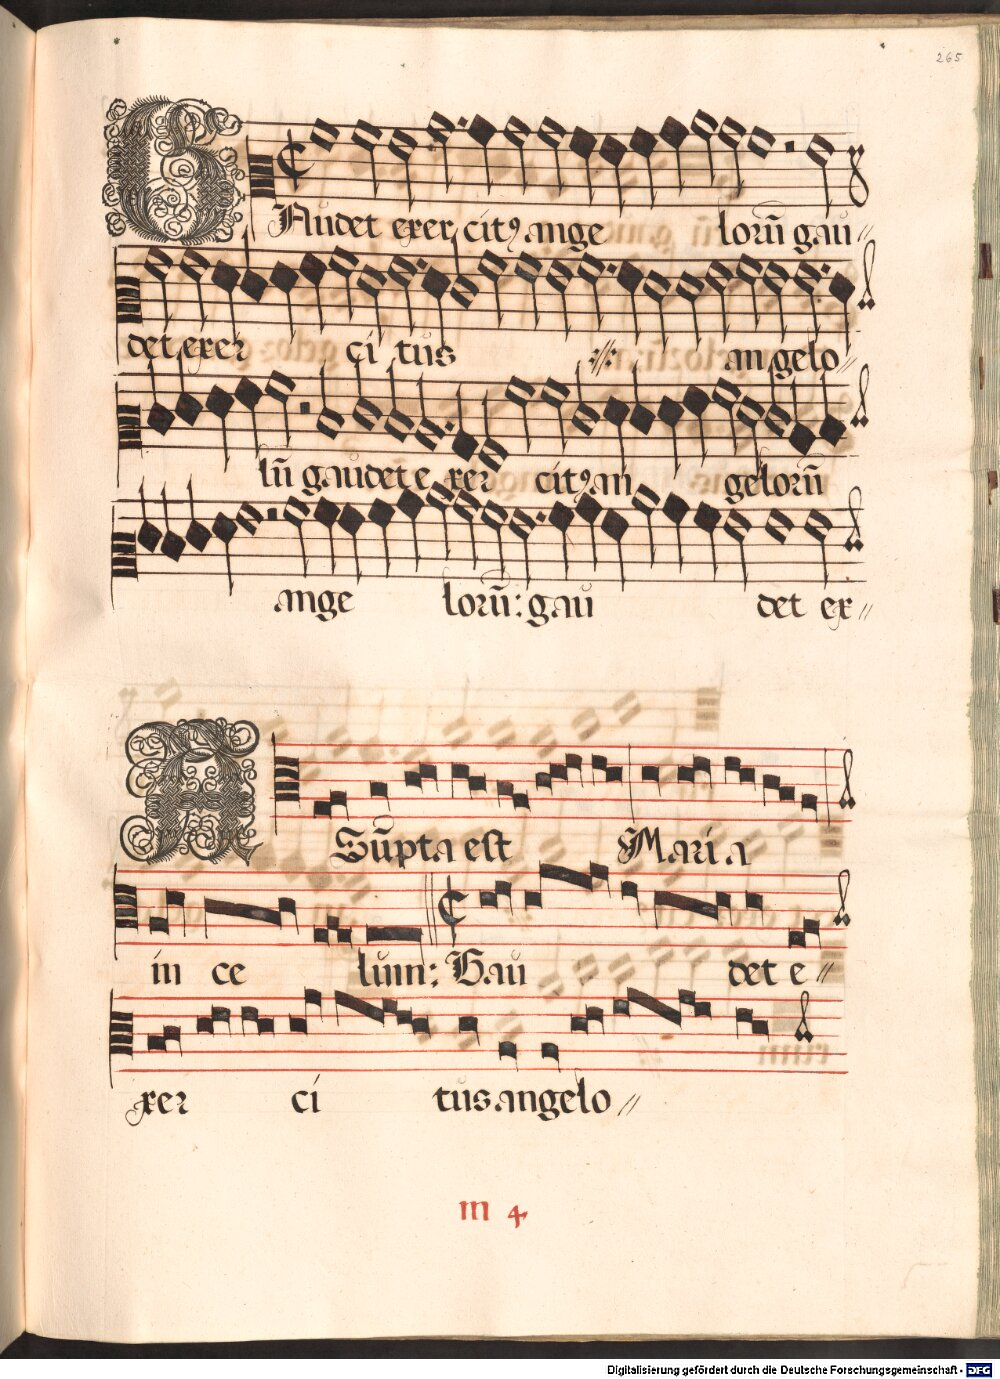 265
GAudet exercitꝰ ange lorū gau〃
det exer ci tus ·//· an gelo〃
lū gaudet e xer citꝰ an gelorū
ange lorū: gau det ex〃
ASūpta est Maria
in ce lum: Gau det e〃
xer ci tus angelo〃
m 4
Digitalisierung gefördert durch die Deutsche Forschungsgemeinschaft - DFG